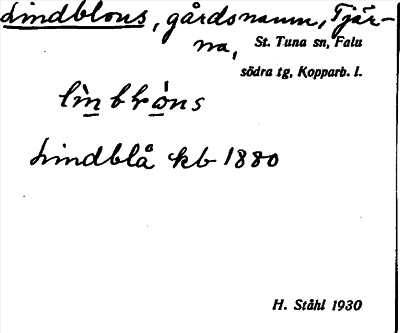 Lindblous, gårdsnamn, Tjär-
na, St. Tuna sn, Falu
södra tg, Kopparb. l.
lìn blróns
Lindblå kb 1880
H. Ståhl 1930